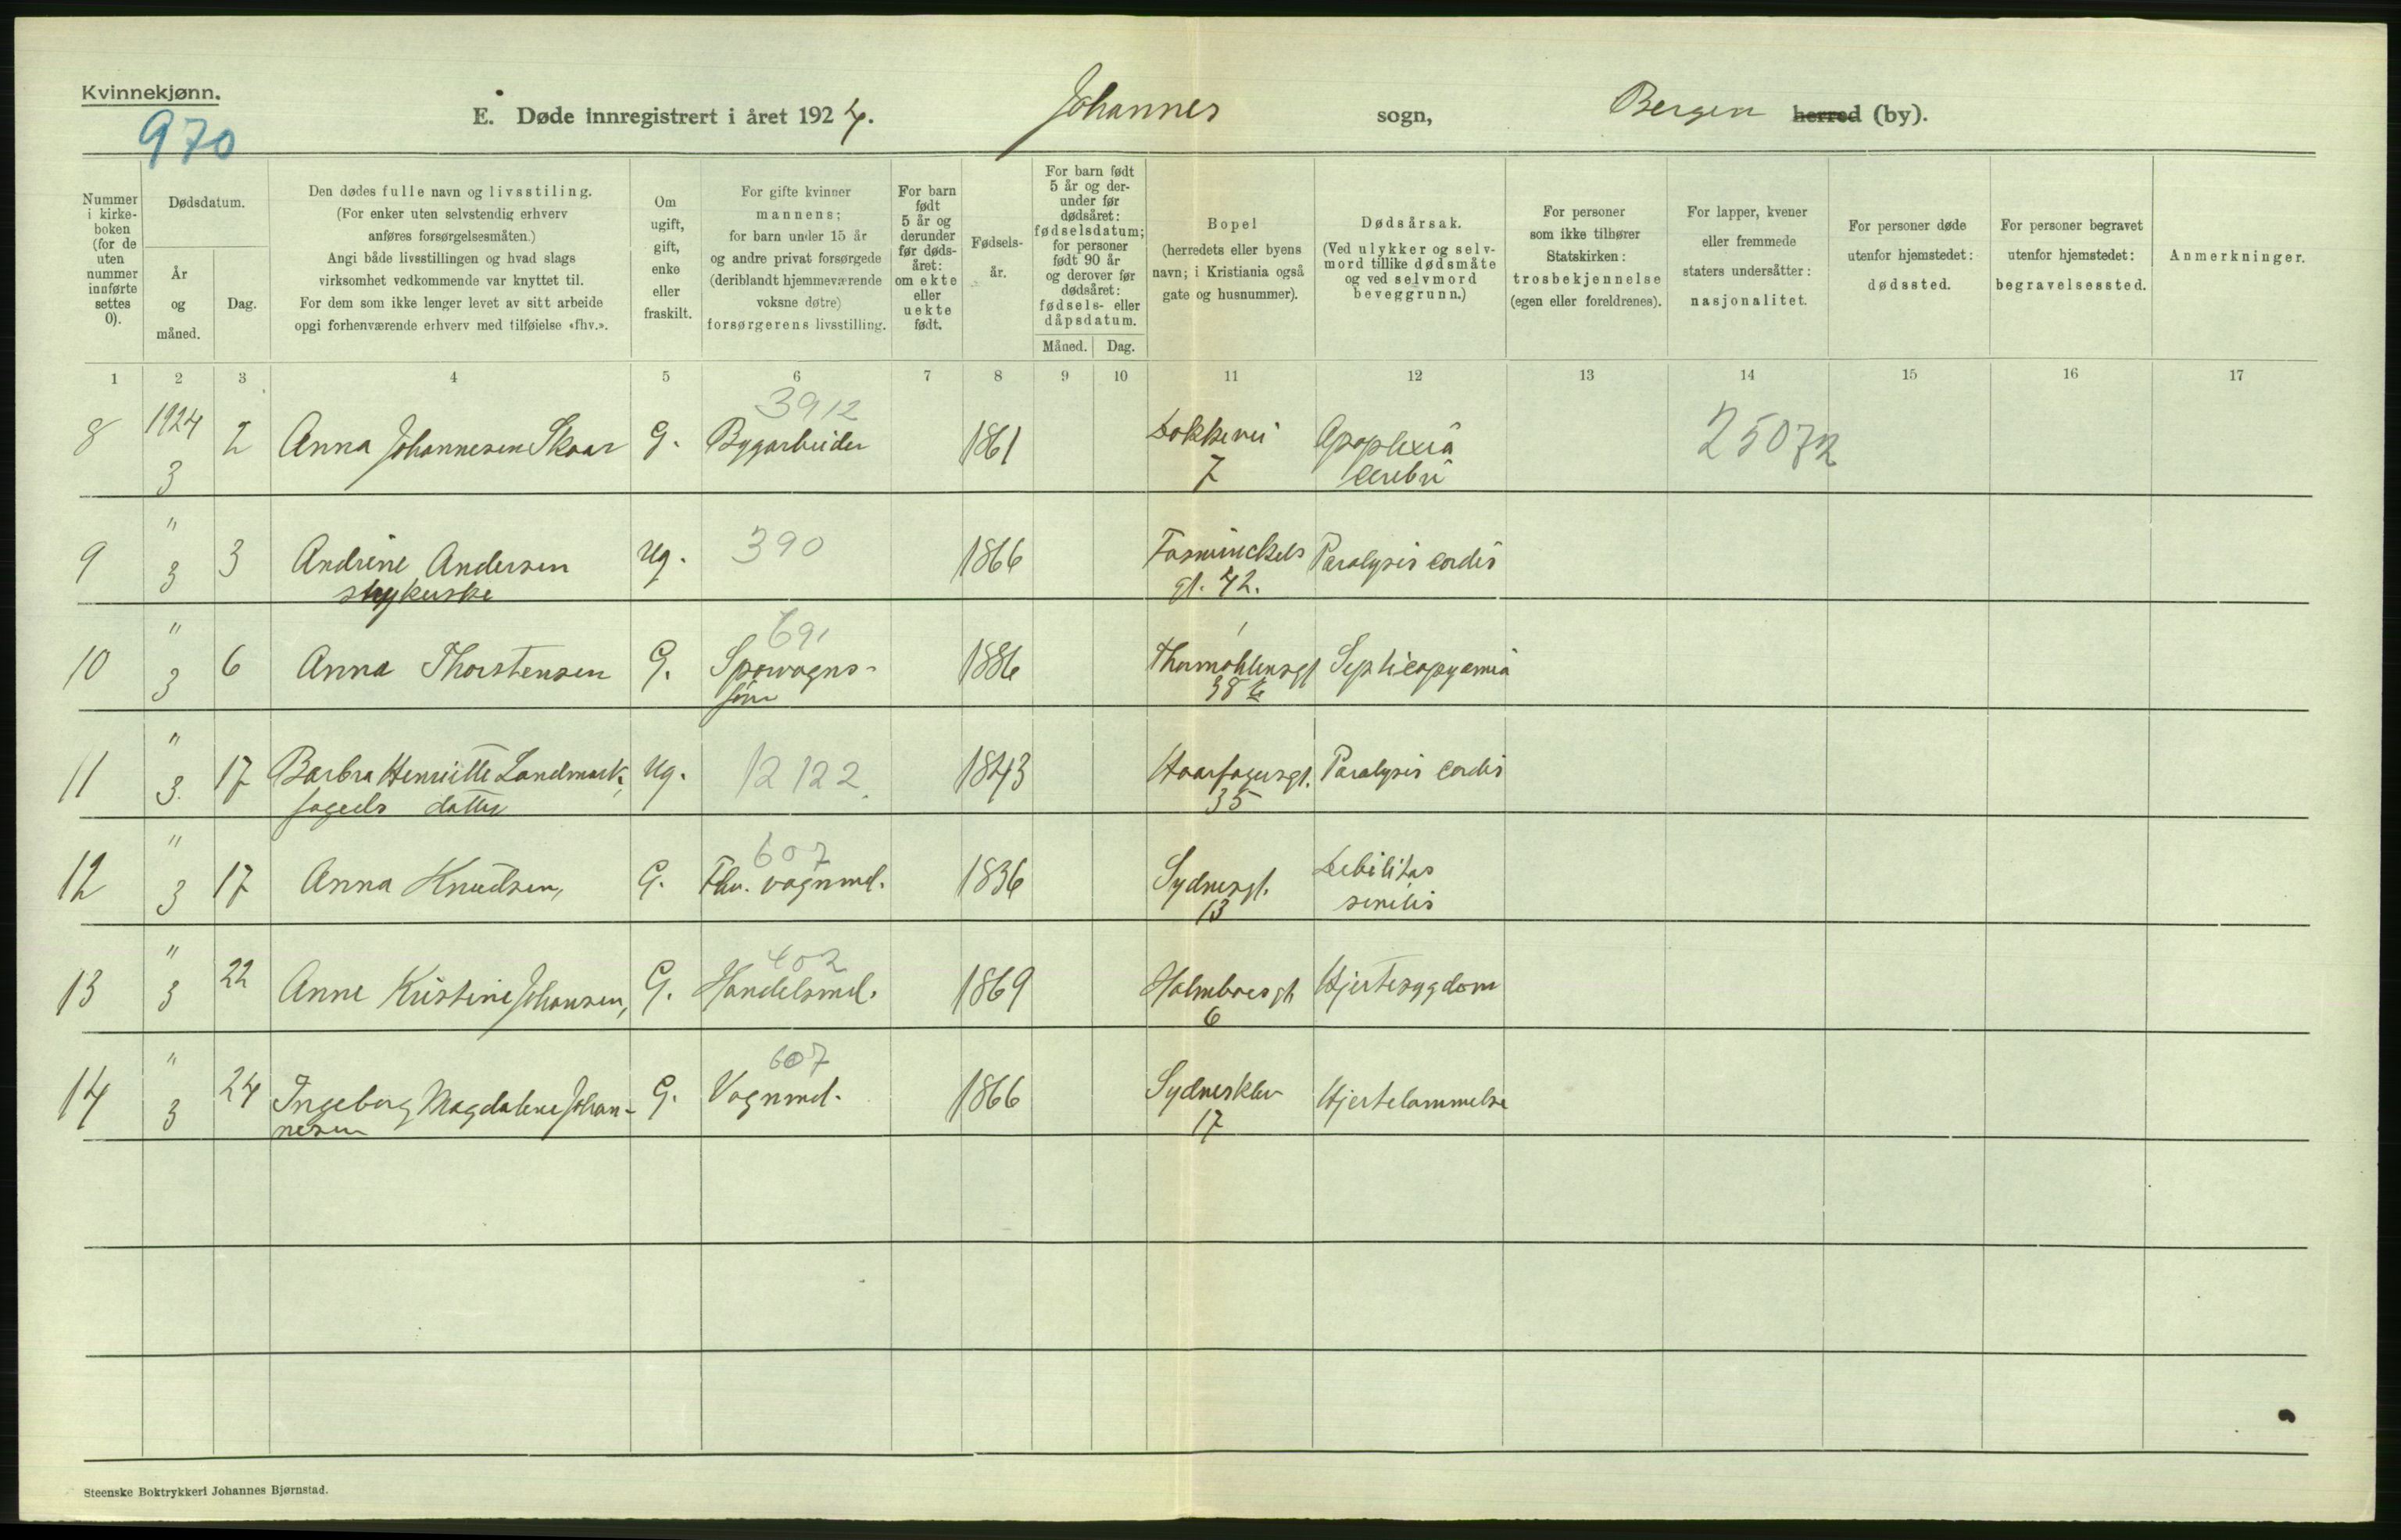 Kvinnekjønn.
970
E. Døde innregistrert i året 1924. Johannes sogn, Bergen herred (by).
Nummer i kirke-boken (for de uten nummer innførte settes 0).
Dødsdatum.
År og måned.
Dag.
Den dødes fulle navn og livsstiling.
(For enker uten selvstendig erhverv
anføres forsørgelsesmåten.)
Angi både livsstillingen og hvad slags
virksomhet vedkommende var knyttet til.
For dem som ikke lenger levet av sitt arbeide
opgi forhenværende erhverv med tilføielse «fhv.».
Om ugift, gift, enke eller fraskilt.
For gifte kvinner
mannens;
for barn under 15 år
og andre privat forsørgede
(deriblandt hjemmeværende
voksne døtre)
forsørgerens livsstilling.
For barn født 5 år og derunder før døds-året: om ekte eller uekte født.
Fødsels-år.
For barn født
5 år og der-
under før
dødsåret:
fødselsdatum;
for personer
født 90 år
og derover før
dødsåret:
fødsels- eller
dåpsdatum.
Måned. Dag.
Bopel
(herredets eller byens
navn; i Kristiania også
gate og husnummer).
Dødsårsak.
(Ved ulykker og selv-
mord tillike dødsmåte
og ved selvmord
beveggrunn.)
For personer
som ikke tilhører
Statskirken:
trosbekjennelse
(egen eller foreldrenes).
For lapper, kvener
eller fremmede
staters undersåtter:
nasjonalitet.
For personer døde
utenfor hjemstedet:
dødssted.
For personer begravet
utenfor hjemstedet:
begravelsessted.
Anmerkninger.
1 2 3 4 5 6 7 8 9 10 11 12 13 14 15 16 17
3912
8 1924 3 2 Anna Johannesen Skaar G. Bygarbeider 1861 Dokkevei 7 Apoplexia cerebri 25072
9 " 3 3 Andrine Andersen strykerske Ug. 390 1866 Fosswinckels gt. 42. Paralysis cordis
691
10 " 3 6 Anna Thorstensen G. Sporvogns- 1886 Thormøhlensgt 38 Septicopyemia
11 " 3. 17 Barbra Henriette Landmark, fogeds datter Ug. 12122 1843 Haarfagersgt. 35 Paralysis cordis
607
12 " 3 17 Anna Knudsen, G. Fhv. vognmd. 1836 Sydnesgt. 13 Debilitas senilis
402
13 " 3 22 Anne Kristine Johansen, G. Handelsmd. 1869 Holmboesgt 6 Hjertesygdom
607
14 " 3 24 Ingeborg Magdalene Johan-nesen G. Vognmd. 1866 Sydnesklev 17 Hjertelammelse
Steenske Boktrykkeri Johannes Bjørnstad.